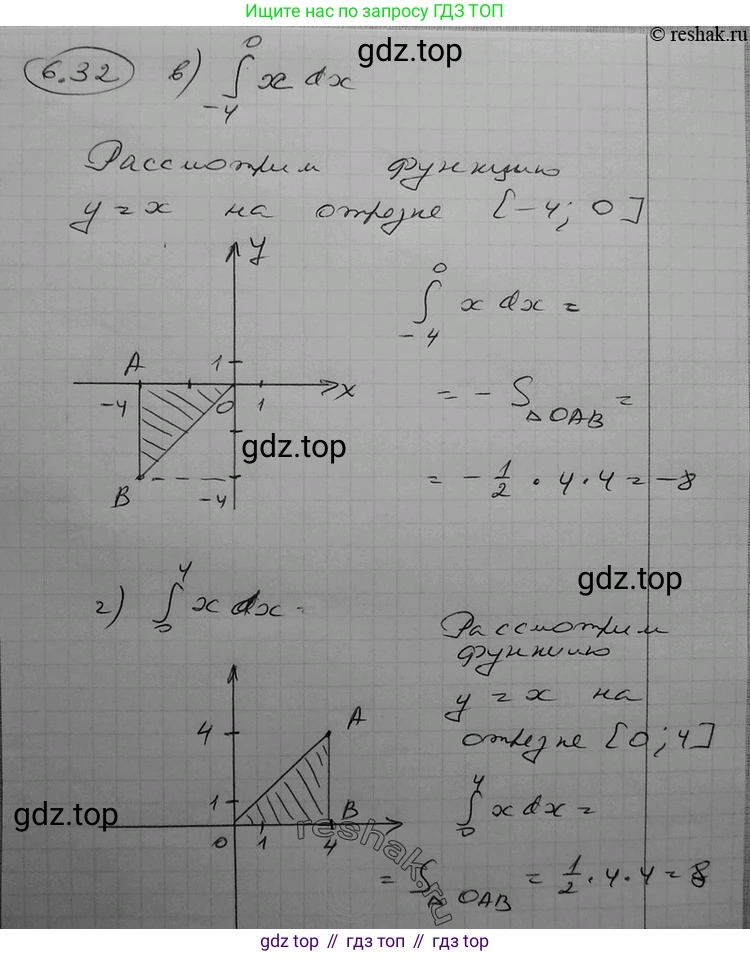 Ищите нас по запросу ГДЗ ТОП
© reshak.ru
gdz.top
6.32 в) ∫₋₄⁰ x dx
Рассмотрим функцию
y = x на отрезке [-4; 0]
y
∫₋₄⁰ x dx =
A
1
-4
0
1
x
= - S△OAB =
gdz.top
B
-4
= - 1/2 · 4 · 4 = -8
gdz.top
г) ∫₀⁴ x dx =
Рассмотрим
функцию
y = x на
отрезке [0; 4]
A
4
∫₀⁴ x dx =
1
B
gdz.top
0
1
4
reshak.ru
= S△OAB = 1/2 · 4 · 4 = 8
gdz top // гдз топ // gdz.top